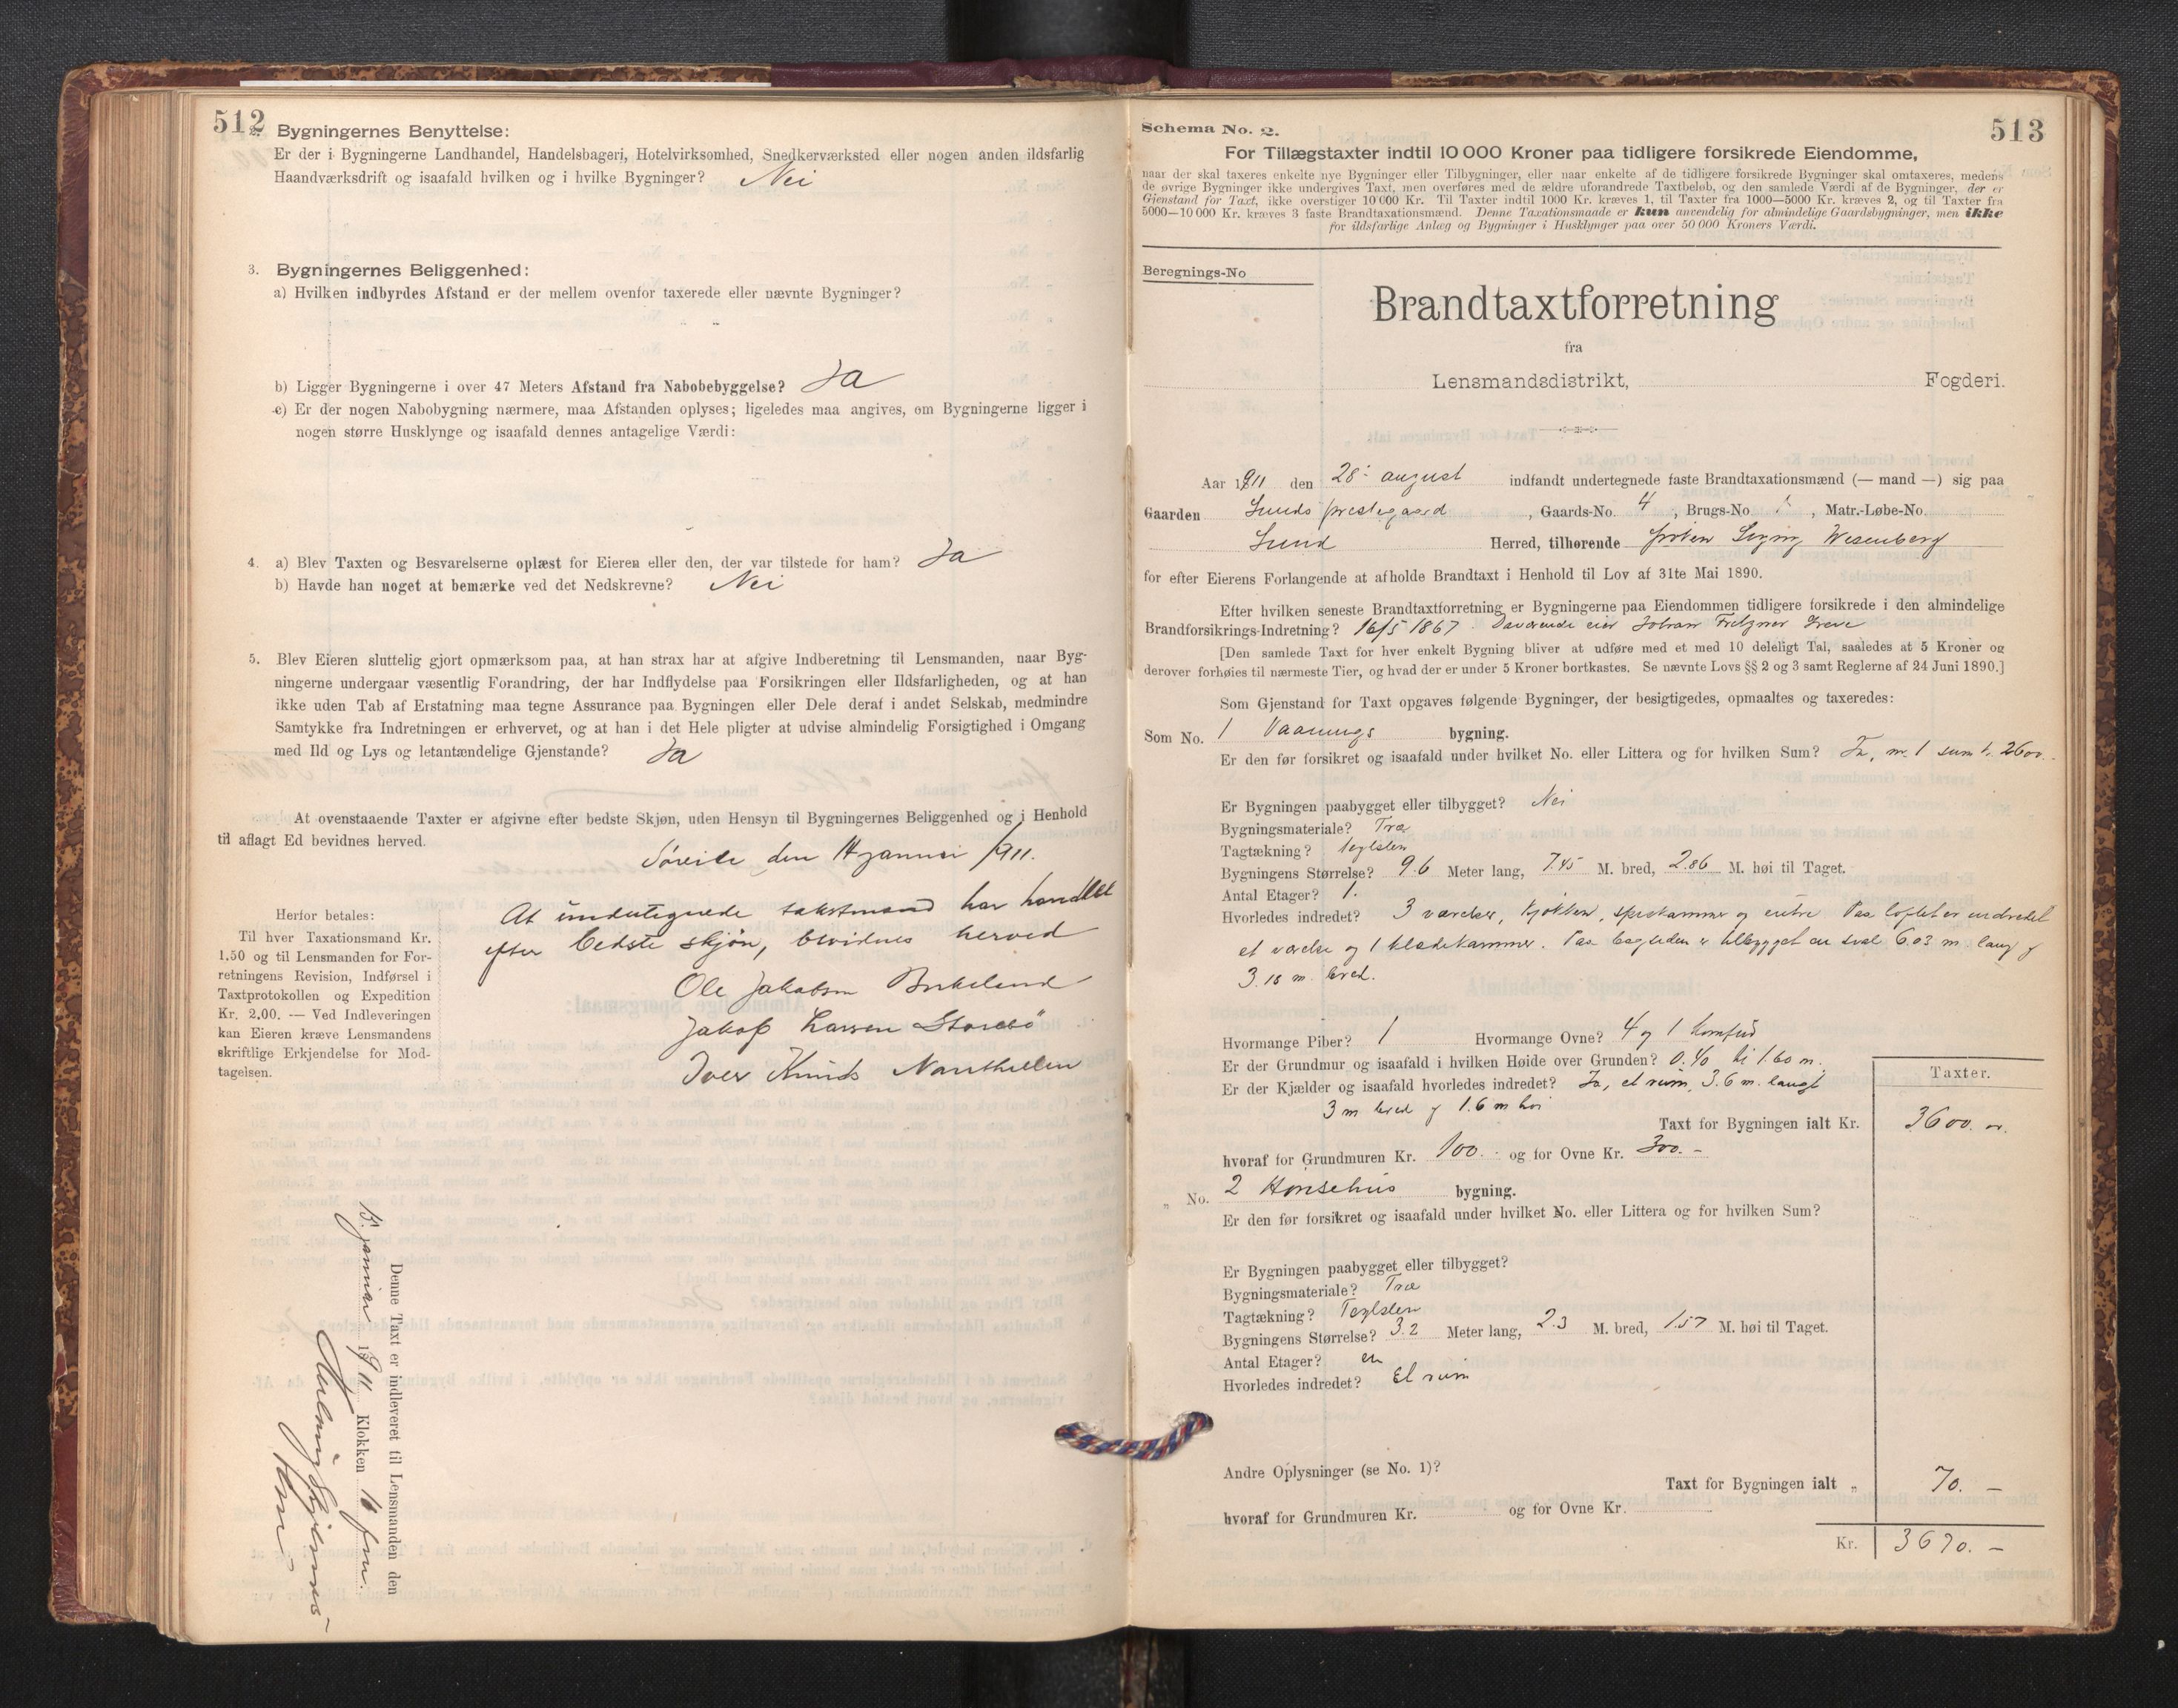 512
2. Bygningernes Benyttelse:
Er der i Bygningerne Landhandel, Handelsbageri, Hotelvirksomhed, Snedkerværksted eller nogen anden ildsfarlig
Haandværksdrift og isaafald hvilken og i hvilke Bygninger? Nei
3. Bygningernes Beliggenhed:
a) Hvilken indbyrdes Afstand er der mellem ovenfor taxerede eller nævnte Bygninger?
b) Ligger Bygningerne i over 47 Meters Afstand fra Nabobebyggelse? Ja
c) Er der nogen Nabobygning nærmere, maa Afstanden oplyses; ligeledes maa angives, om Bygningerne ligger i
nogen større Husklynge og isaafald dennes antagelige Værdi:
4. a) Blev Taxten og Besvarelserne oplæst for Eieren eller den, der var tilstede for ham? Ja
b) Havde han noget at bemærke ved det Nedskrevne? Nei
5. Blev Eieren sluttelig gjort opmærksom paa, at han strax har at afgive Indberetning til Lensmanden, naar Byg-
ningerne undergaar væsentlig Forandring, der har Indflydelse paa Forsikringen eller Ildsfarligheden, og at han
ikke uden Tab af Erstatning maa tegne Assurance paa Bygningen eller Dele deraf i andet Selskab, medmindre
Samtykke fra Indretningen er erhvervet, og at han i det Hele pligter at udvise almindelig Forsigtighed i Omgang
med Ild og Lys og letantændelige Gjenstande? Ja
At ovenstaaende Taxter er afgivne efter bedste Skjøn, uden Hensyn til Bygningernes Beliggenhed og i Henhold
til aflagt Ed bevidnes herved.
den 14 januar 1911.
At undertegnede takstmænd har handlet
efter bedste skjøn, bevidnes herved
Ole Jakobsen Birkeland
Jakob Larsen Storebø
Iver Knuds
Herfor betales:
Til hver Taxationsmand Kr.
1.50 og til Lensmanden for For-
retningens Revision, Indførsel i
Taxtprotokollen og Expedition
Kr. 2.00. — Ved Indleveringen
kan Eieren kræve Lensmandens
skriftlige Erkjendelse for Mod-
tagelsen.
Denne Taxt er indleveret til Lensmanden den
15. januar 1911 Klokken 10 fm.
513
Schema No. 2.
For Tillægstaxter indtil 10 000 Kroner paa tidligere forsikrede Eiendomme,
naar der skal taxeres enkelte nye Bygninger eller Tilbygninger, eller naar enkelte af de tidligere forsikrede Bygninger skal omtaxeres, medens
de øvrige Bygninger ikke undergives Taxt, men overføres med de ældre uforandrede Taxtbeløb, og den samlede Værdi af de Bygninger, der er
Gjenstand for Taxt, ikke overstiger 10 000 Kr. Til Taxter indtil 1000 Kr. kræves 1, til Taxter fra 1000—5000 Kr. kræves 2, og til Taxter fra
5000—10 000 Kr. kræves 3 faste Brandtaxationsmænd. Denne Taxationsmaade er kun anvendelig for almindelige Gaardsbygninger, men ikke
for ildsfarlige Anlæg og Bygninger i Husklynger paa over 50 000 Kroners Værdi.
Beregnings-No
Brandtaxtforretning
fra
Lensmandsdistrikt, Fogderi.
Aar 1911 den 28: august indfandt undertegnede faste Brandtaxationsmænd (— mand —) sig paa
Gaarden Sunds prestegaard, Gaards-No. 4, Brugs-No. 1, Matr.-Løbe-No.
Sund Herred, tilhørende frøken Signy Wesenberg
for efter Eierens Forlangende at afholde Brandtaxt i Henhold til Lov af 31te Mai 1890.
Efter hvilken seneste Brandtaxtforretning er Bygningerne paa Eiendommen tidligere forsikrede i den almindelige
Brandforsikrings-Indretning? 16/5 1867. Daværende eier Johan Fritzner Greve
[Den samlede Taxt for hver enkelt Bygning bliver at udføre med et med 10 deleligt Tal, saaledes at 5 Kroner og
derover forhøies til nærmeste Tier, og hvad der er under 5 Kroner bortkastes. Se nævnte Lovs §§ 2 og 3 samt Reglerne af 24 Juni 1890.]
Som Gjenstand for Taxt opgaves følgende Bygninger, der besigtigedes, opmaaltes og taxeredes:
Som No. 1 Vaanings bygning.
Er den før forsikret og isaafald under hvilket No. eller Littera og for hvilken Sum? Ja, nr. 1 sum kr. 2600.
Er Bygningen paabygget eller tilbygget? Nei
Bygningsmateriale? Træ
Tagtækning? Teglsten
Bygningens Størrelse? 9.6 Meter lang, 7.45 M. bred, 2.86 M. høi til Taget.
Antal Etager? 1.
Hvorledes indredet? 3 værelser, kjøkken, spiskammer og entre Paa loftet er indredet
et værelse og 1 klædekammer. Paa bagsiden er tilbygget en sval 6.03 m. lang og
3.15 m. bred.
Hvormange Piber? 1 Hvormange Ovne? 4 og 1 komfur
Er der Grundmur og isaafald i hvilken Høide over Grunden? 0.40 til 1.60 m.
Er der Kjælder og isaafald hvorledes indredet? Ja, et rum, 3.6 m. langt
3 m bred og 1.6 m høi
Taxter.
Taxt for Bygningen ialt Kr. 3600. –
hvoraf for Grundmuren Kr. 100. - og for Ovne Kr. 300. –
„ No. 2 Hønsehus bygning.
Er den før forsikret og isaafald under hvilket No. eller Littera og for hvilken Sum?
Er Bygningen paabygget eller tilbygget?
Bygningsmateriale? Træ
Tagtækning? Teglsten
Bygningens Størrelse? 3.2 Meter lang, 2.3 M. bred, 1.57 M. høi til Taget.
Antal Etager? en
Hvorledes indredet? Et rum
Andre Oplysninger (se No. 1)?
Taxt for Bygningen ialt „ 70. –
hvoraf for Grundmuren Kr. og for Ovne Kr.
Kr. 3670. –